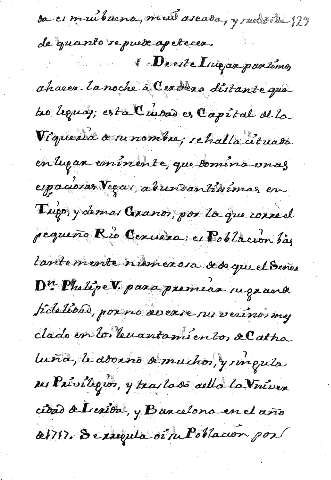 da es mui buena, mui aseada, y surtida 129
de quanto se puede apetecer.
De este Lugar partimos
a hacer la noche â Cervera distante qua-
tro leguas; esta Ciudad es Capital de la
Viqueria de su nombre; se halla cituada
en lugar eminente, que domina unas
espaciosas Vegas, abundantissimas en
Trigo, y demas Granos; por la que corre el
pequeño Rio Cervera: es Poblacion bas
tantemente numerosa desde que el Señor
Dn. Phelipe V. para premiar su grande
fidelidad, por no averse sus vecinos mez
clado en los levantamientos de Catha
luña, la adorno de muchos, y singula
res Privilegios, y traslado aella la Univer
cidad de Lerida, y Barcelona en el año
de 1717. Se regula oi su Poblacion por